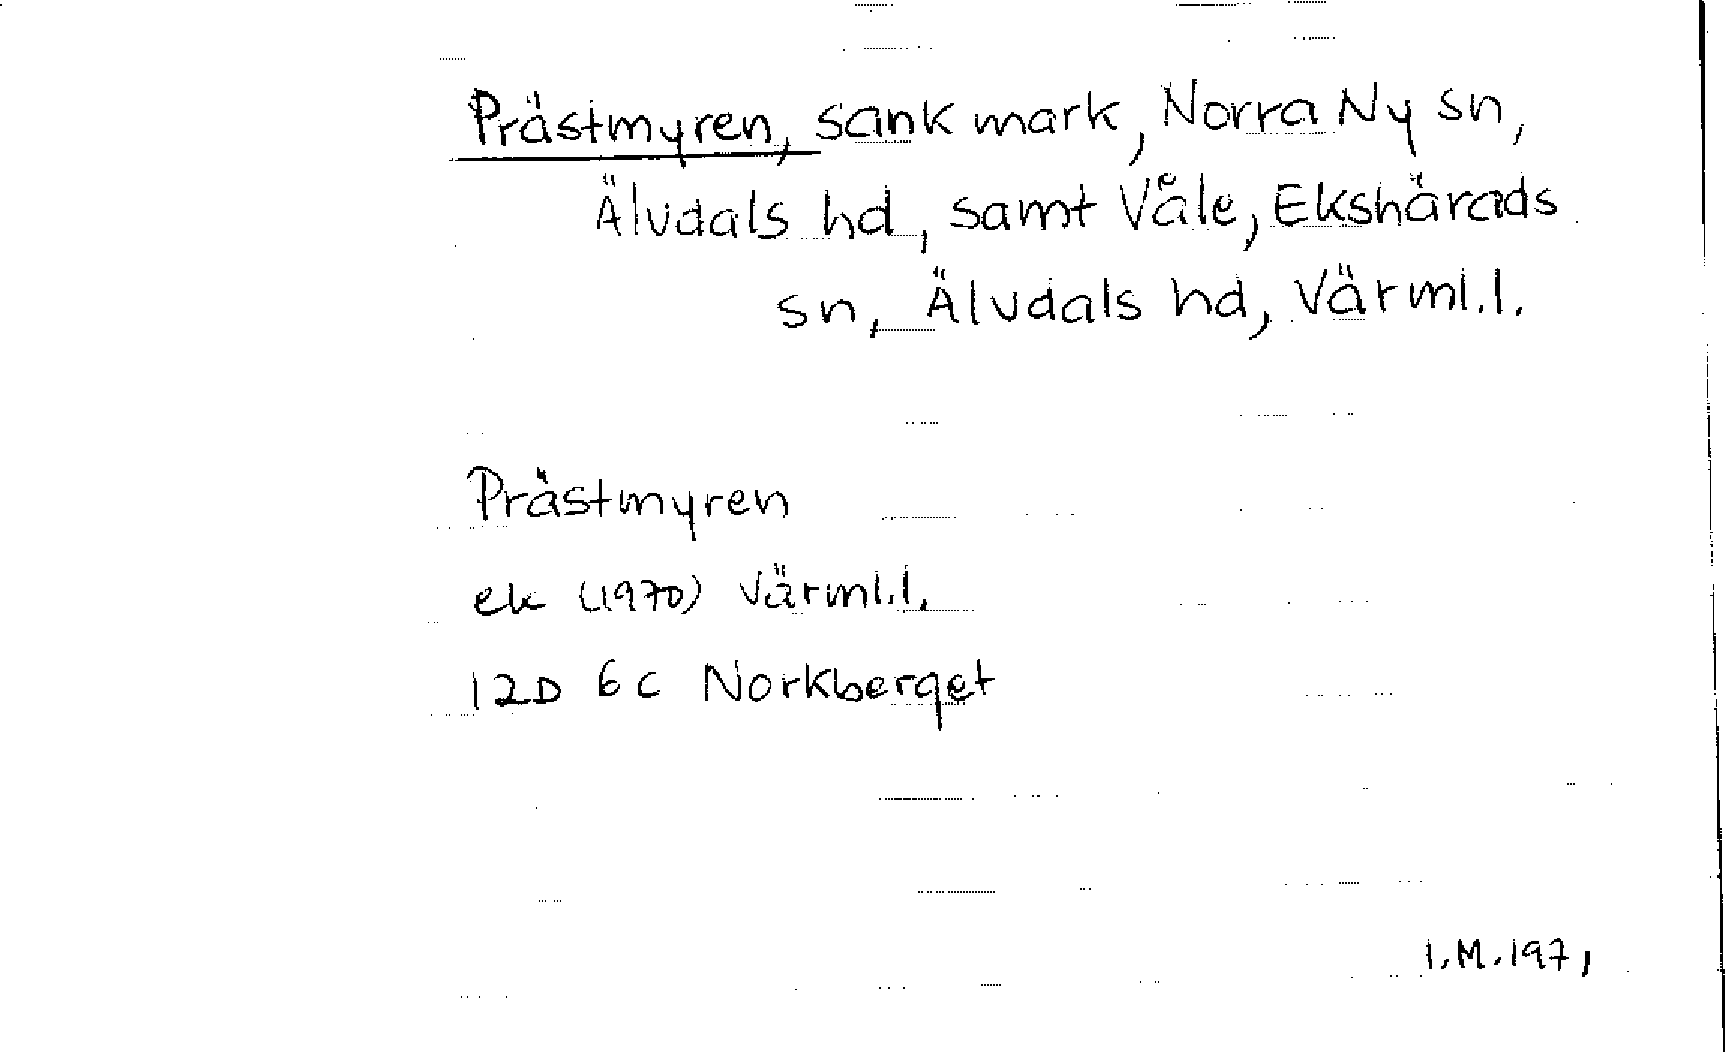 Prästmyren, sank mark, Norra Ny sn,
Älvdals hd, samt Våle, Ekshärads
sn, Älvdals hd, Värml.l.
Prästmyren
ek (1970) Värml.l.
12D 6c Norkberget
I.M.1971